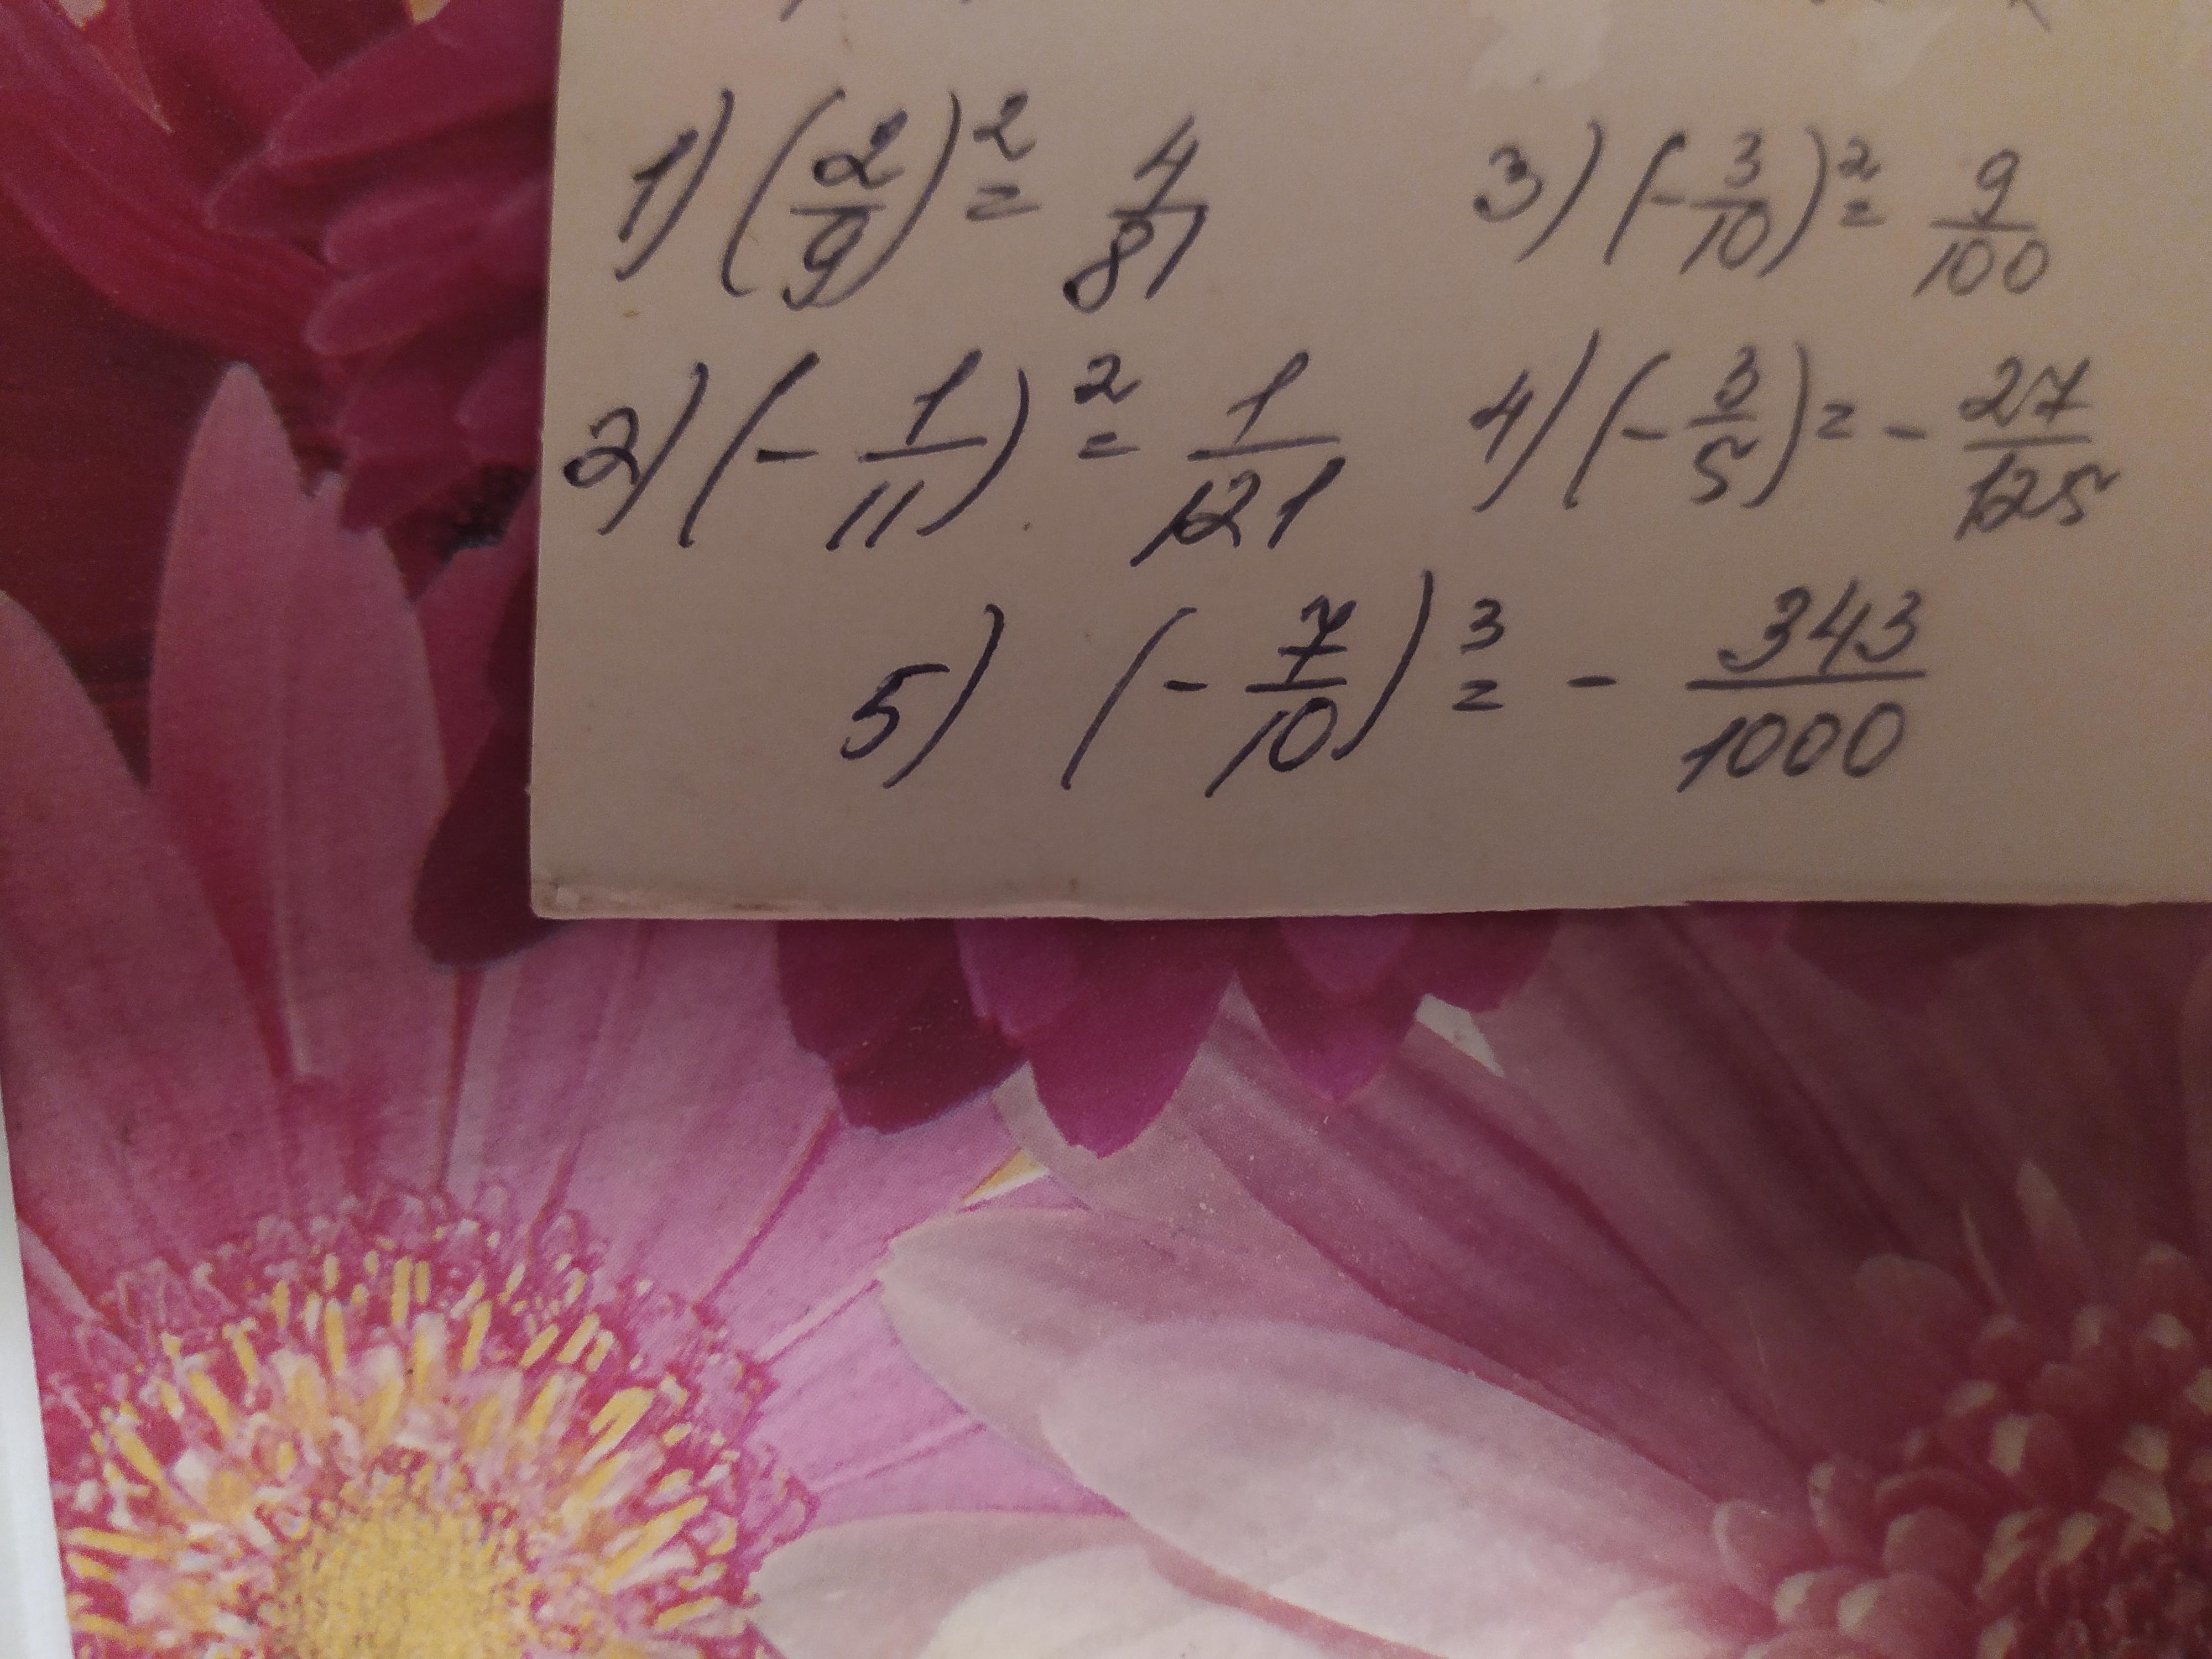 1) (2/9)² = 4/81 3) (-3/10)² = 9/100
2) (-1/11)² = 1/121 4) (-3/5) = -27/125
5) (-7/10)³ = -343/1000